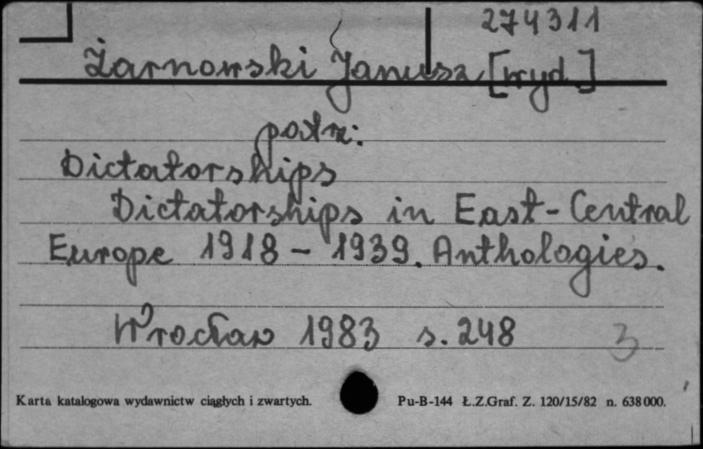 274311
Żarnowski Janusz [wyd.]
patrz:
Dictatorships
Dictatorships in East-Central
Europe 1918 - 1939. Anthologies.
Wrocław 1983 s. 248
3
Karta katalogowa wydawnictw ciągłych i zwartych. Pu-B-144 Ł.Z.Graf. Z. 120/15/82 n. 638000.